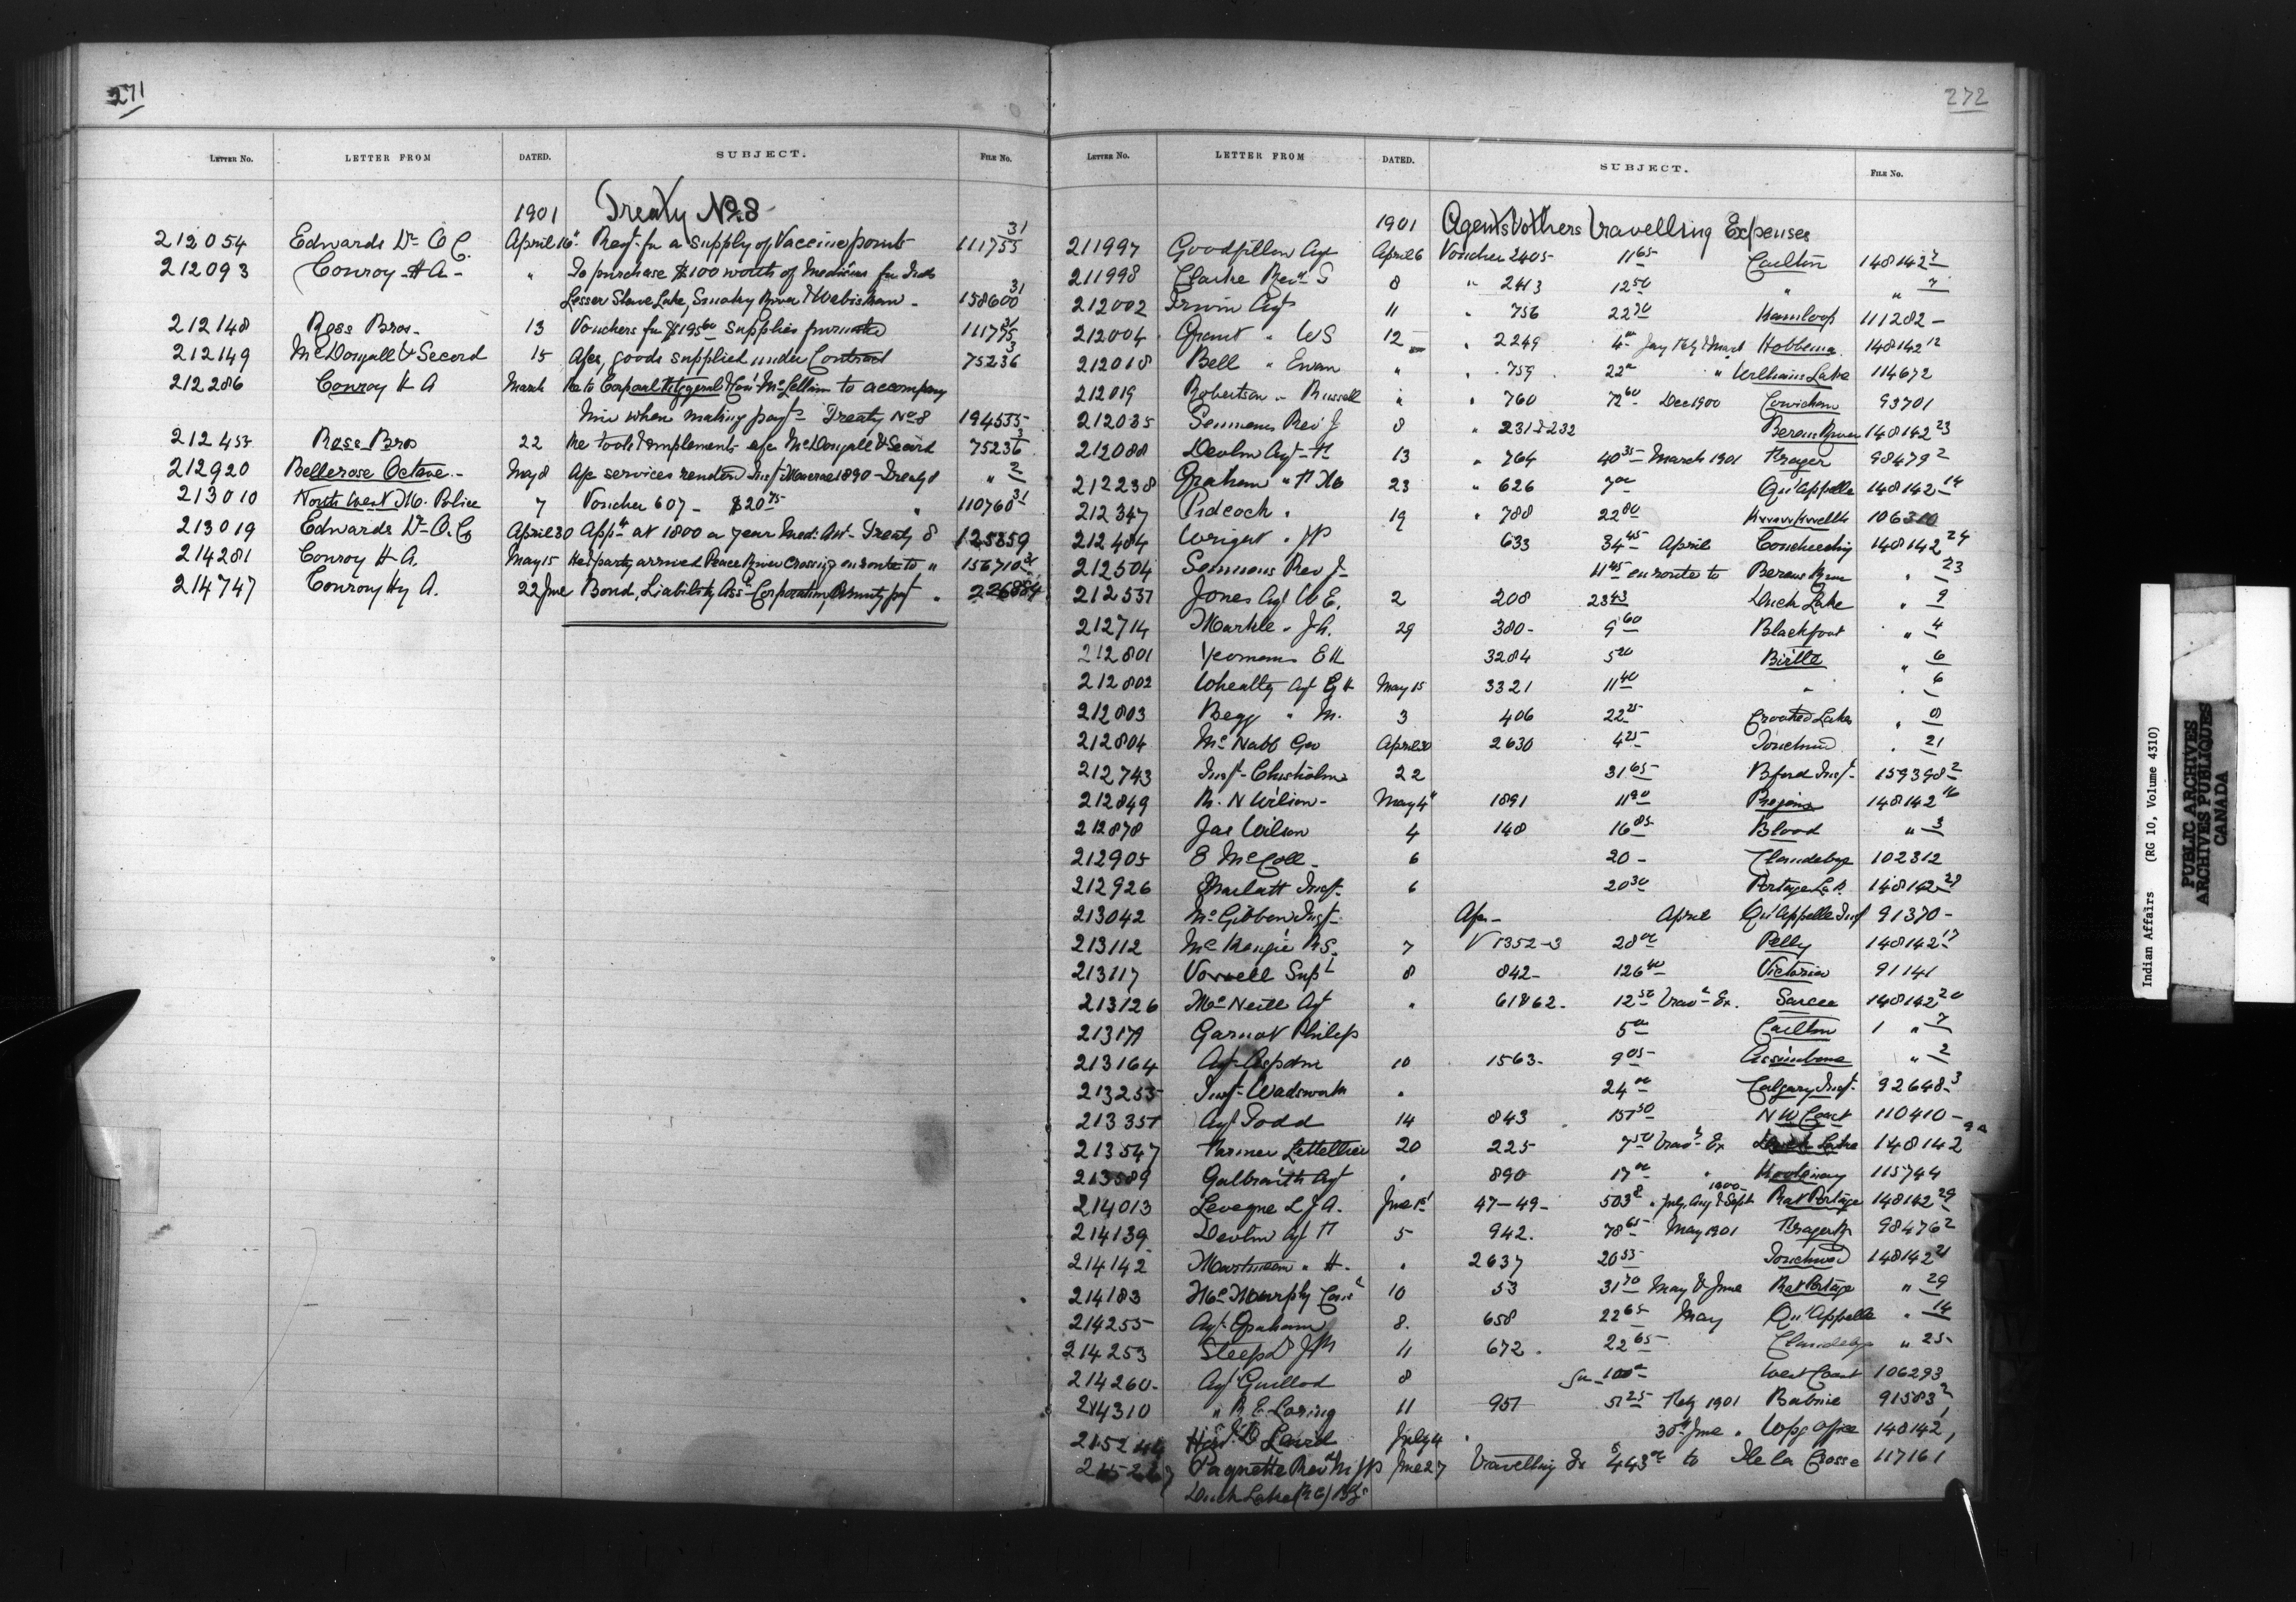 271
LETTER No. LETTER FROM DATED. SUBJECT. FILE No.
1901 Treaty No. 8
212054 Edwards Dr O C. April 16" Reqt. for a supply of Vaccine points 111755 31
212093 Conroy H A - " To purchase $100 worth of Medicines for Inds
Lesser Slave Lake, Smoky River & Wabiskaw - 158600 31
212148 Ross Bros - 13 Vouchers for $195 60 supplies 111775 31
212149 McDougall & Secord 15 goods supplied under Contract 75236 3
212286 Conroy H A March Re to Corporal Fitzgerald & McLellan to accompany
him when making payts Treaty No 8 194535
212453 Ross Bros 22 Re tools & implements McDougall & Secord 75236 3
212920 Bellerose Octave - May 8 services rendered 1890 - Treaty 8 " 2
213010 North West M. Police 7 Voucher 607 - $20 75 " 110760 31
213019 Edwards Dr O. C. April 30 Appt at 1800 a year Med. Att - Treaty 8 125859
214281 Conroy H A. May 15 He & party arrived Peace River Crossing en route to " 156710
214747 Conroy Hy A. 22 June Bond, Liability Corporation, Annuity pay " 226884
272
LETTER No. LETTER FROM DATED. SUBJECT. FILE No.
1901 Agents & others travelling Expenses
211997 Agt April 6 Voucher 2405 - 11 65 Carlton 148142 7
211998 Clarke Rev S 8 " 2413 12 50 " " 7
212002 Irwin Agt 11 " 756 22 70 Kamloop 111282 -
212004 Grant " WS 12 " 2249 4 Jany Feby & March Hobbema 148142 12
212018 Bell " Ewan " " 759 22 " Williams Lake 114672
212019 Robertson " " " 760 72 60 Dec 1900 Cowichan 93701
212035 Semmens Rev J 8 " 231 & 232 Berens River 148142 23
212088 Devlin Agt F 13 " 764 40 35 March 1901 Fraser 98479 2
212238 Graham " 23 " 626 7 00 Qu'Appelle 148142 14
212347 Pidcock " 19 " 788 22 80 106310
212484 Wright " JP 633 34 45 April Couchiching 148142 24
212504 Semmens Rev J - 11 45 en route to Berens River " 23
212537 Jones Agt W E. 2 208 23 43 Duck Lake " 9
212714 Markle - J A. 29 380 - 9 60 Blackfoot " 4
212801 Yeomans E H 3284 5 20 Birtle " 6
212802 Wheatley Agt G H May 15 3321 11 40 " " 6
212803 Begg " M. 3 406 22 25 Crooked Lakes " 8
212804 McNabb Geo April 30 2630 4 25 Touchwood " 21
212743 Inspt. Chisholm 22 31 65 Bford Inspt - 159398 2
212849 R. N Wilson - May 4" 1891 11 90 148142 16
212878 Jas Wilson 4 148 16 85 Blood " 3
212905 E McColl - 6 20 - Clandeboye 102312
212926 Marlatt Inspt 6 20 30 Portage La P. 148142 28
213042 McGibbon Inspt April Qu'Appelle Inspt 91370 -
213112 McKenzie R S. 7 V 1352-3 28 00 Pelly 148142 17
213117 Vowell Supt 8 842 - 126 40 Victoria 91141
213126 McNeill Agt " 61862 - 12 50 Trav. Ex. Sarcee 148142 20
Garnot Philip 5 00 Carlton 1 " 7
213164 Agt Aspdin 10 1563 - 9 05 Assiniboine " 2
213255 Inspt. Wadsworth " 24 00 Calgary Inspt. 92648 3
213351 Agt Todd 14 843 N W Coast 110410 -
213547 Farmer Lettellier 20 225 7 50 Trav. Ex Duck Lake 148142 9a
213589 Galbraith Agt " 890 17 00 " Kootenay 115744
214013 Leveque L J A. June 1st 47-49 - " July, Aug & Sept 1900 Rat Portage 148142 29
214139 Devlin Agt F 5 942. 78 65 May 1901 Fraser R 98476 2
214142 Martineau " H. " 2637 20 53 Touchwood 148142 21
214183 McMurphy 10 53 31 70 May & June Rat Portage " 29
214255 Agt. Graham 8. 658 22 65 May Qu'Appelle " 14
214253 Steep Dr J M 11 672. 22 65 Clandeboye " 25
214260 - Agt Guillod 8 100 West Coast 106293
214310 " R E Loring 11 951 51 25 Feby 1901 Babine 91583 2
Hon. D Laird July 4 30th June " Wpg office 148142 1
Paquette Rev M J P June 27 Travelling Ex $443 00 to Ile la Crosse 117161
Duck Lake (R C)
Indian Affairs (RG 10, Volume 4310)
PUBLIC ARCHIVES
ARCHIVES PUBLIQUES
CANADA